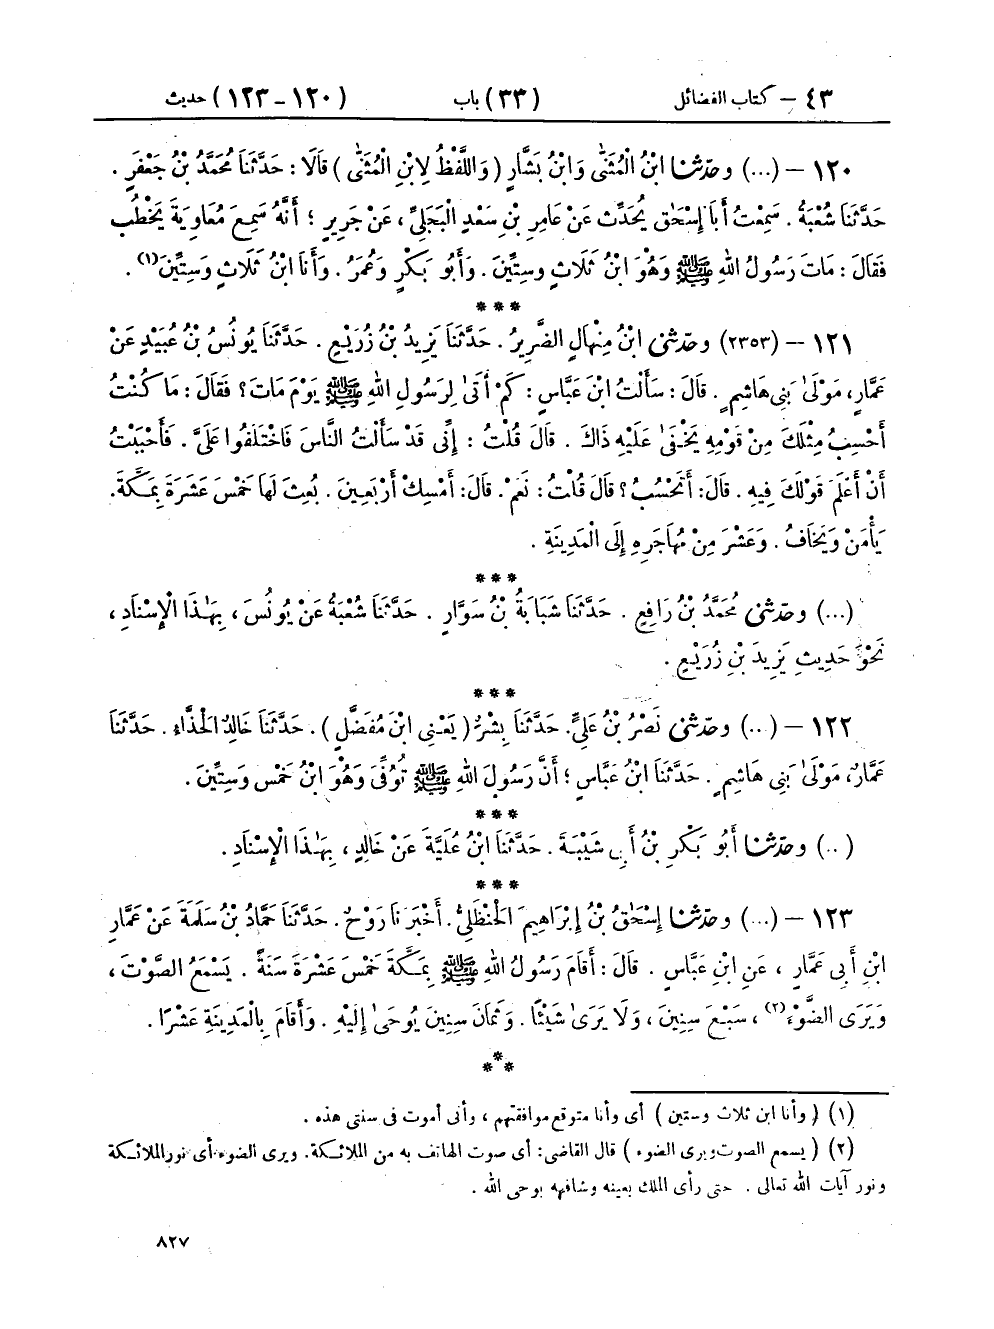 ٤٣ – كتاب الفضائل (٣٣) باب (١٢٠ – ١٢٣) حديث
١٢٠ – (...) وحدّثنا ابْنُ الْمُثَنَّىٰ وَابْنُ بَشَّارٍ (وَاللَّفْظُ لِابْنِ الْمُثَنَّىٰ) قَالَا: حَدَّثَنَا مُحَمَّدُ بْنُ جَعْفَرٍ.
حَدَّثَنَا شُعْبَةُ. سَمِعْتُ أَبَا إِسْحَٰقَ يُحَدِّثُ عَنْ عَامِرِ بْنِ سَعْدٍ الْبَجَلِيِّ، عَنْ جَرِيرٍ؛ أَنَّهُ سَمِعَ مُعَاوِيَةَ يَخْطُبُ
فَقَالَ: مَاتَ رَسُولُ اللهِ ﷺ وَهُوَ ابْنُ ثَلَاثٍ وَسِتِّينَ. وَأَبُو بَكْرٍ وَعُمَرُ. وَأَنَا ابْنُ ثَلَاثٍ وَسِتِّينَ(١).
***
١٢١ – (٢٣٥٣) وحدّثنى ابْنُ مِنْهَالٍ الضَّرِيرُ. حَدَّثَنَا يَزِيدُ بْنُ زُرَيْعٍ. حَدَّثَنَا يُونُسُ بْنُ عُبَيْدٍ عَنْ
عَمَّارٍ، مَوْلَىٰ بَنِى هَاشِمٍ. قَالَ: سَأَلْتُ ابْنَ عَبَّاسٍ: كَمْ أَتَىٰ لِرَسُولِ اللهِ ﷺ يَوْمَ مَاتَ؟ فَقَالَ: مَا كُنْتُ
أَحْسِبُ مِثْلَكَ مِنْ قَوْمِهِ يَخْفَىٰ عَلَيْهِ ذَاكَ. قَالَ قُلْتُ: إِنِّى قَدْ سَأَلْتُ النَّاسَ فَاخْتَلَفُوا عَلَىَّ. فَأَحْبَبْتُ
أَنْ أَعْلَمَ قَوْلَكَ فِيهِ. قَالَ: أَتَحْسُبُ؟ قَالَ قُلْتُ: نَعَمْ. قَالَ: أَمْسِكْ أَرْبَعِينَ. بُعِثَ لَهَا خَمْسَ عَشْرَةَ بِمَكَّةَ.
يَأْمَنُ وَيَخَافُ. وَعَشْرَ مِنْ مُهَاجَرِهِ إِلَى الْمَدِينَةِ.
***
(...) وحدّثنى مُحَمَّدُ بْنُ رَافِعٍ. حَدَّثَنَا شَبَابَةُ بْنُ سَوَّارٍ. حَدَّثَنَا شُعْبَةُ عَنْ يُونُسَ، بِهَٰذَا الْإِسْنَادِ،
نَحْوَ حَدِيثِ يَزِيدَ بْنِ زُرَيْعٍ.
***
١٢٢ – (..) وحدّثنى نَصْرُ بْنُ عَلِيٍّ. حَدَّثَنَا بِشْرٌ (يَعْنِى ابْنَ مُفَضَّلٍ). حَدَّثَنَا خَالِدٌ الْحَذَّاءُ. حَدَّثَنَا
عَمَّارٌ، مَوْلَىٰ بَنِى هَاشِمٍ. حَدَّثَنَا ابْنُ عَبَّاسٍ؛ أَنَّ رَسُولَ اللهِ ﷺ تُوُفِّىَ وَهُوَ ابْنُ خَمْسٍ وَسِتِّينَ.
***
(..) وحدّثنا أَبُو بَكْرِ بْنُ أَبِى شَيْبَةَ. حَدَّثَنَا ابْنُ عُلَيَّةَ عَنْ خَالِدٍ، بِهَٰذَا الْإِسْنَادِ.
***
١٢٣ – (...) وحدّثنا إِسْحَٰقُ بْنُ إِبْرَاهِيمَ الْحَنْظَلِيُّ. أَخْبَرَنَا رَوْحٌ. حَدَّثَنَا حَمَّادُ بْنُ سَلَمَةَ عَنْ عَمَّارِ
ابْنِ أَبِى عَمَّارٍ، عَنِ ابْنِ عَبَّاسٍ. قَالَ: أَقَامَ رَسُولُ اللهِ ﷺ بِمَكَّةَ خَمْسَ عَشْرَةَ سَنَةً. يَسْمَعُ الصَّوْتَ،
وَيَرَى الضَّوْءَ(٢)، سَبْعَ سِنِينَ، وَلَا يَرَىٰ شَيْئًا. وَثَمَانَ سِنِينَ يُوحَىٰ إِلَيْهِ. وَأَقَامَ بِالْمَدِينَةِ عَشْرًا.
***
(١) (وأنا ابن ثلاث وستين) أى وأنا متوقع موافقتهم، وأنى أموت فى سنتى هذه.
(٢) (يسمع الصوت ويرى الضوء) قال القاضى: أى صوت الهاتف به من الملائكة. ويرى الضوء أى نور الملائكة
ونور آيات الله تعالى. حتى رأى الملك بعينه وشافهه بوحى الله.
٨٢٧